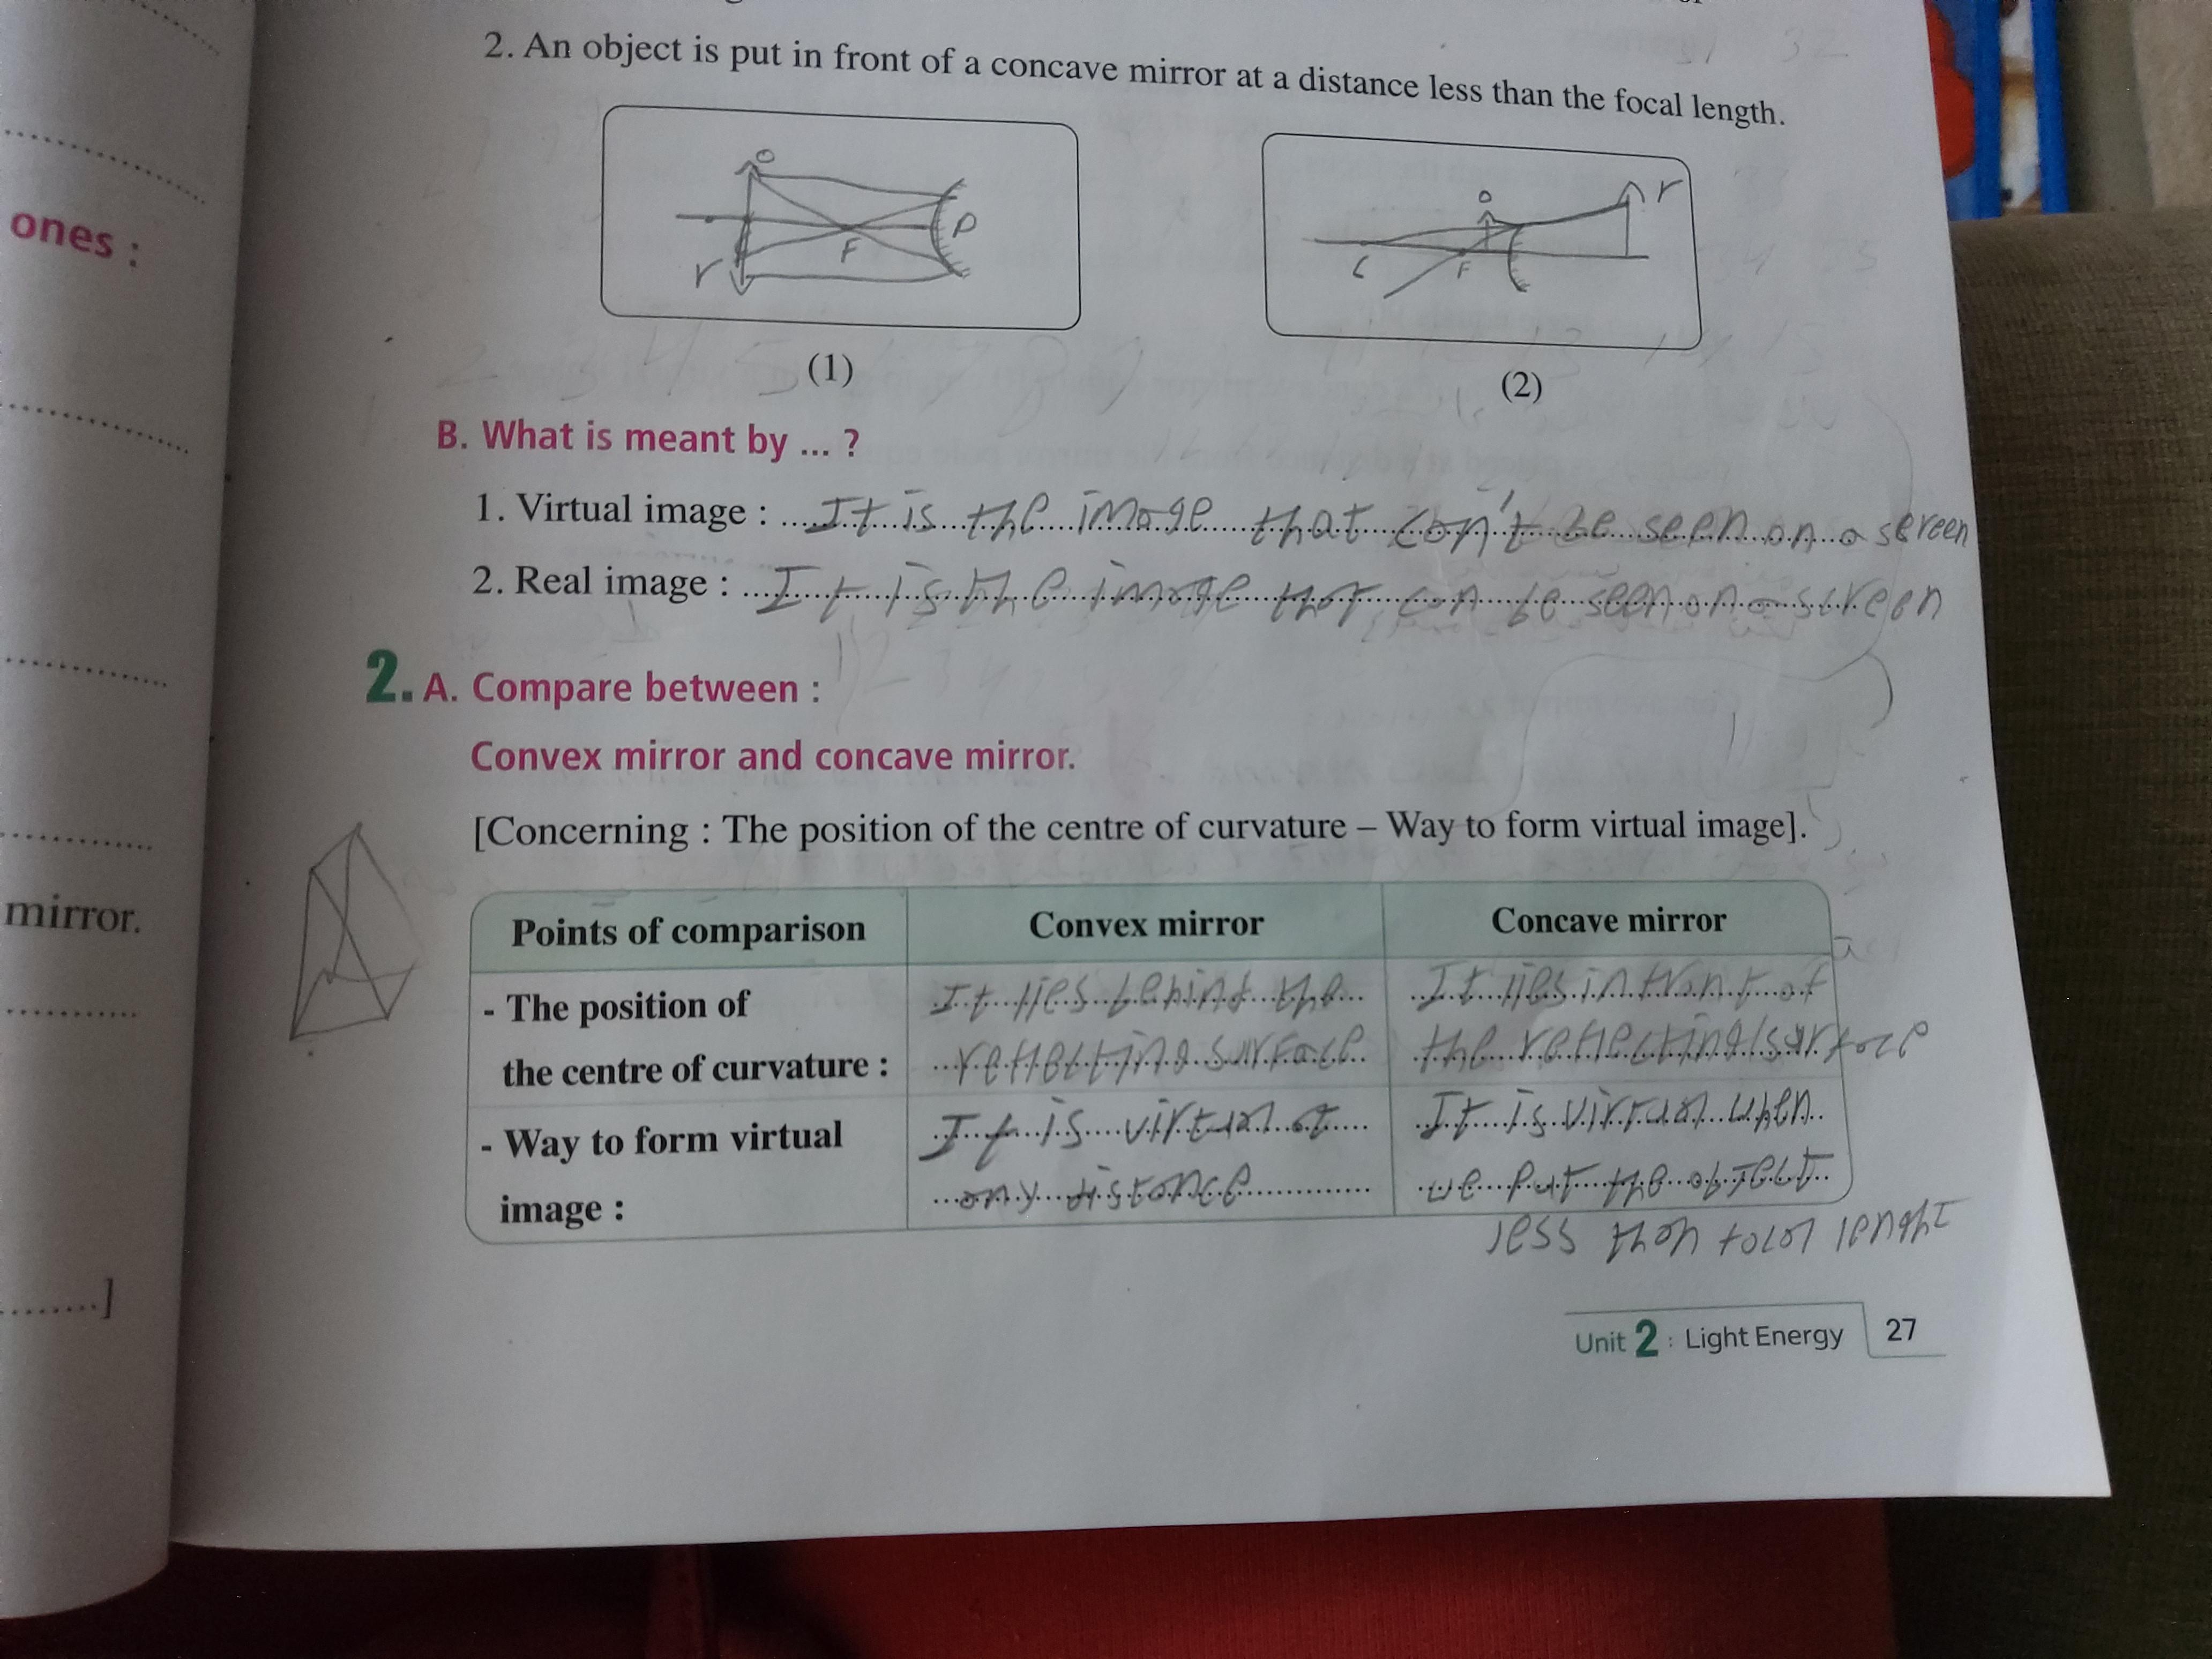 2. An object is put in front of a concave mirror at a distance less than the focal length.
O
F
P
r
O
r
C
F
(1)
(2)
B. What is meant by ... ?
1. Virtual image : It is the image that can't be seen on a screen
2. Real image : It is the image that can be seen on a screen
ones :
2. A. Compare between :
Convex mirror and concave mirror.
[Concerning : The position of the centre of curvature – Way to form virtual image].
mirror.
Points of comparison Convex mirror Concave mirror
- The position of It lies behind the It lies in front of
the centre of curvature : reflecting surface the reflecting surface
- Way to form virtual It is virtual at It is virtual when
image : any distance we put the object
less than focal lenght
]
Unit 2 : Light Energy 27